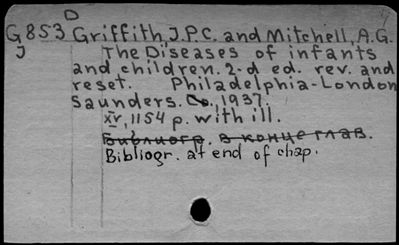 D
G853 Griffith, J.P.C. and Mitchell, A.G.
J The Diseases of infants
and children. 2-d ed. rev. and
reset. Philadelphia-London
Saunders. Co., 1937.
XV, 1154 p. with ill.
Библиогр. в конце глав.
Bibliogr. at end of chap.